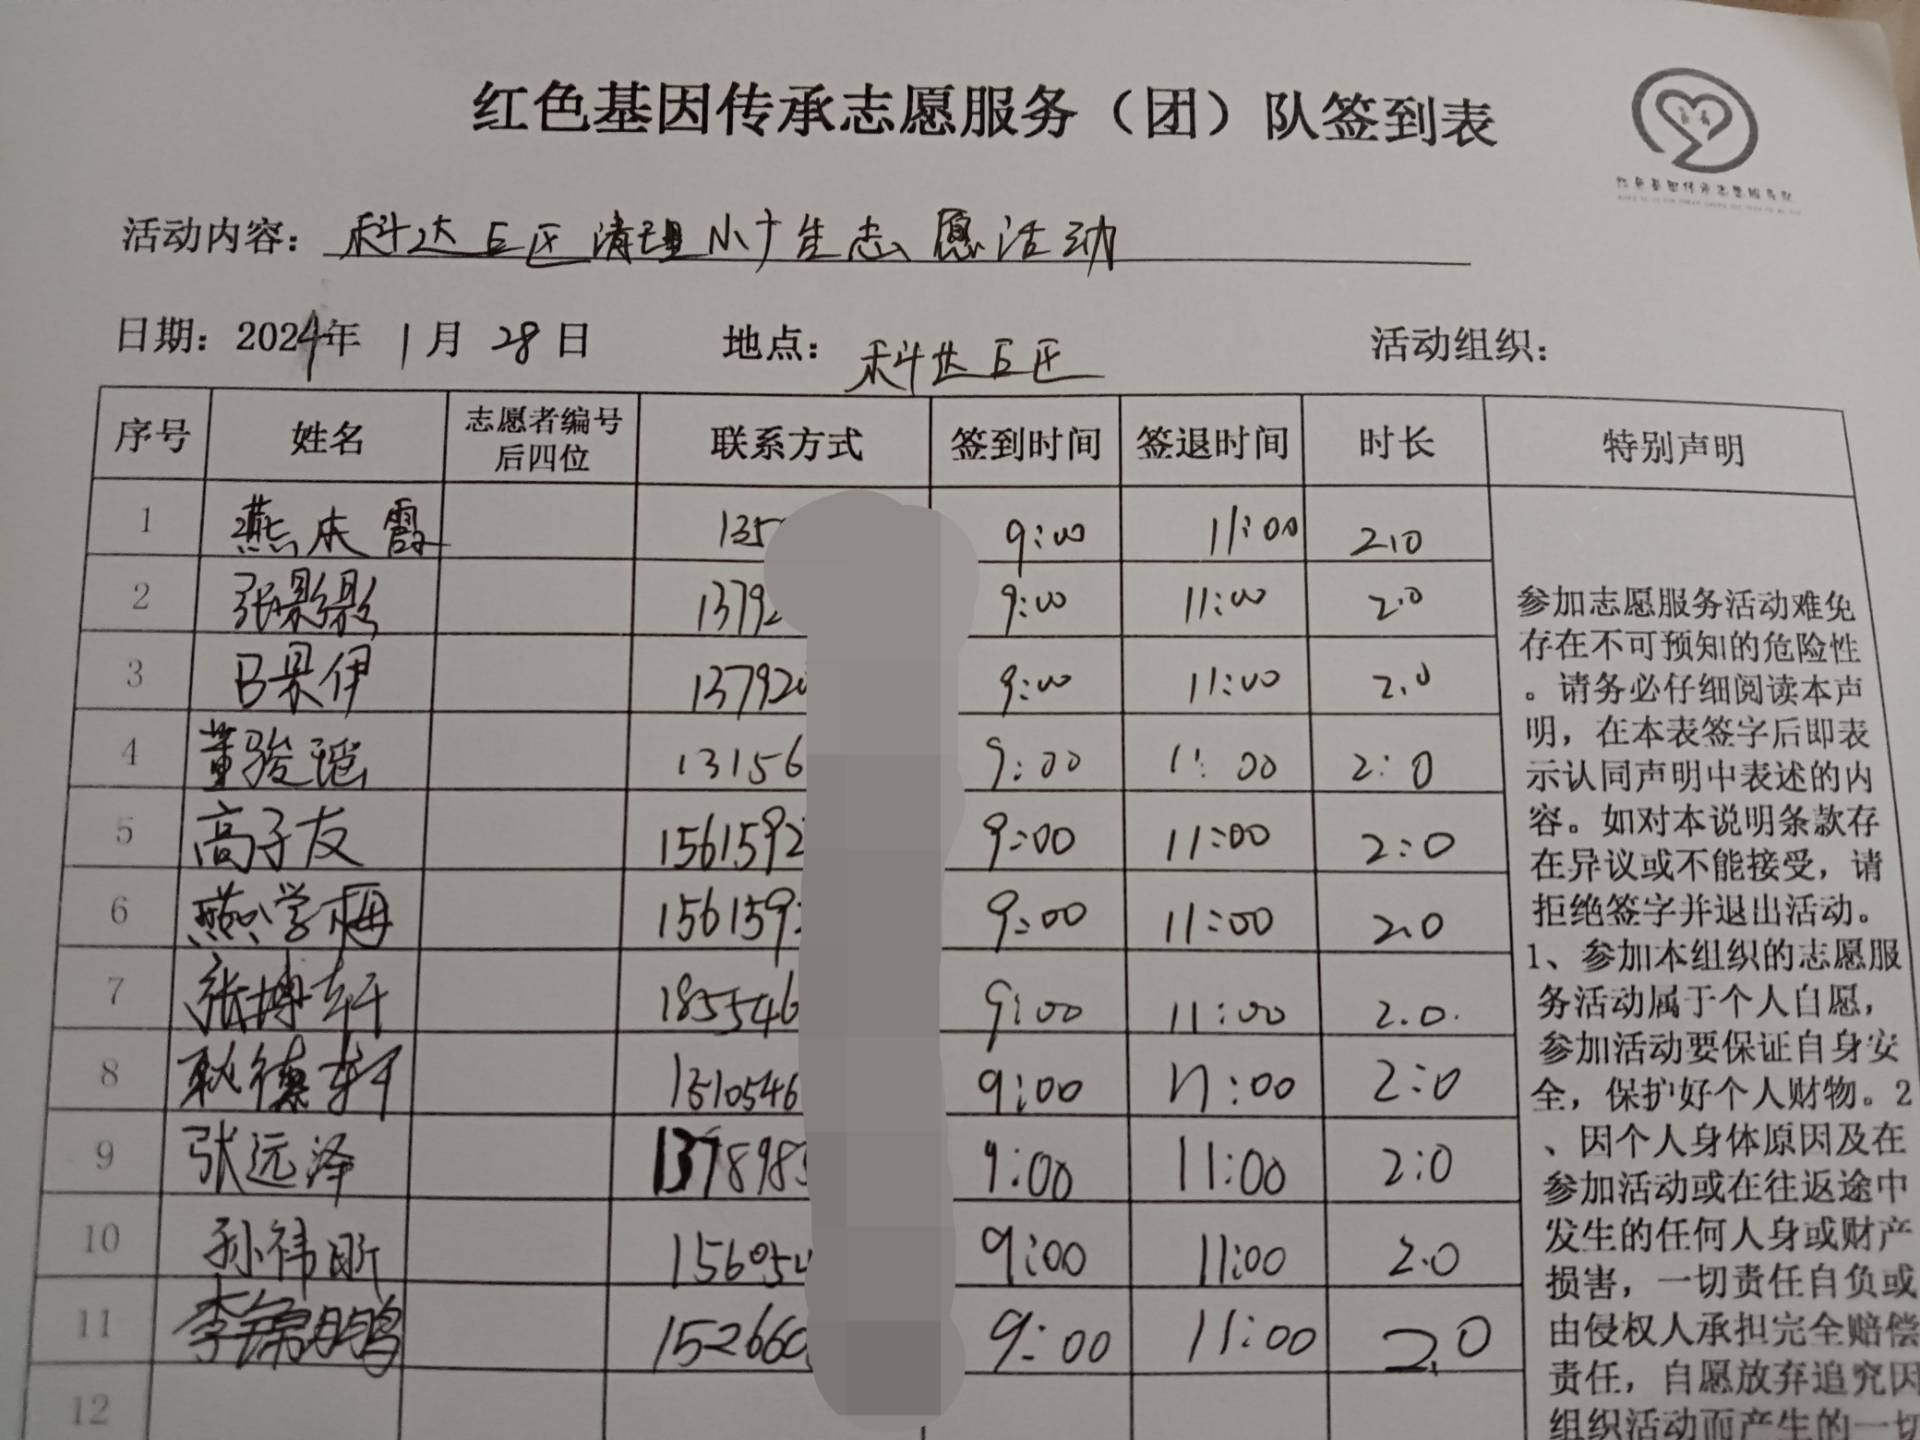 红色基因传承志愿服务（团）队签到表
红色基因传承志愿服务队
活动内容：科达巨区清理小广生志愿活动
日期：2024年 1月 28日 地点：科达巨区 活动组织：
序号 姓名 志愿者编号后四位 联系方式 签到时间 签退时间 时长 特别声明
1 燕本霞 135 9:00 11:00 2.0
2 张影影 1379 9:00 11:00 2.0
3 吕景伊 13792 9:00 11:00 2.0
4 董骏瑶 13156 9:00 11:00 2:0
5 高子友 1561592 9:00 11:00 2:0
6 燕学梅 156159 9:00 11:00 2.0
7 张博轩 185546 9:00 11:00 2.0.
8 耿德轩 1310546 9:00 11:00 2:0
9 张远泽 137898 9:00 11:00 2:0
10 孙祎昕 156054 9:00 11:00 2.0
11 李锦鹏 152660 9:00 11:00 2.0
12
参加志愿服务活动难免
存在不可预知的危险性
。请务必仔细阅读本声
明，在本表签字后即表
示认同声明中表述的内
容。如对本说明条款存
在异议或不能接受，请
拒绝签字并退出活动。
1、参加本组织的志愿服
务活动属于个人自愿，
参加活动要保证自身安
全，保护好个人财物。2
、因个人身体原因及在
参加活动或在往返途中
发生的任何人身或财产
损害，一切责任自负或
由侵权人承担完全赔偿
责任，自愿放弃追究因
组织活动而产生的一切